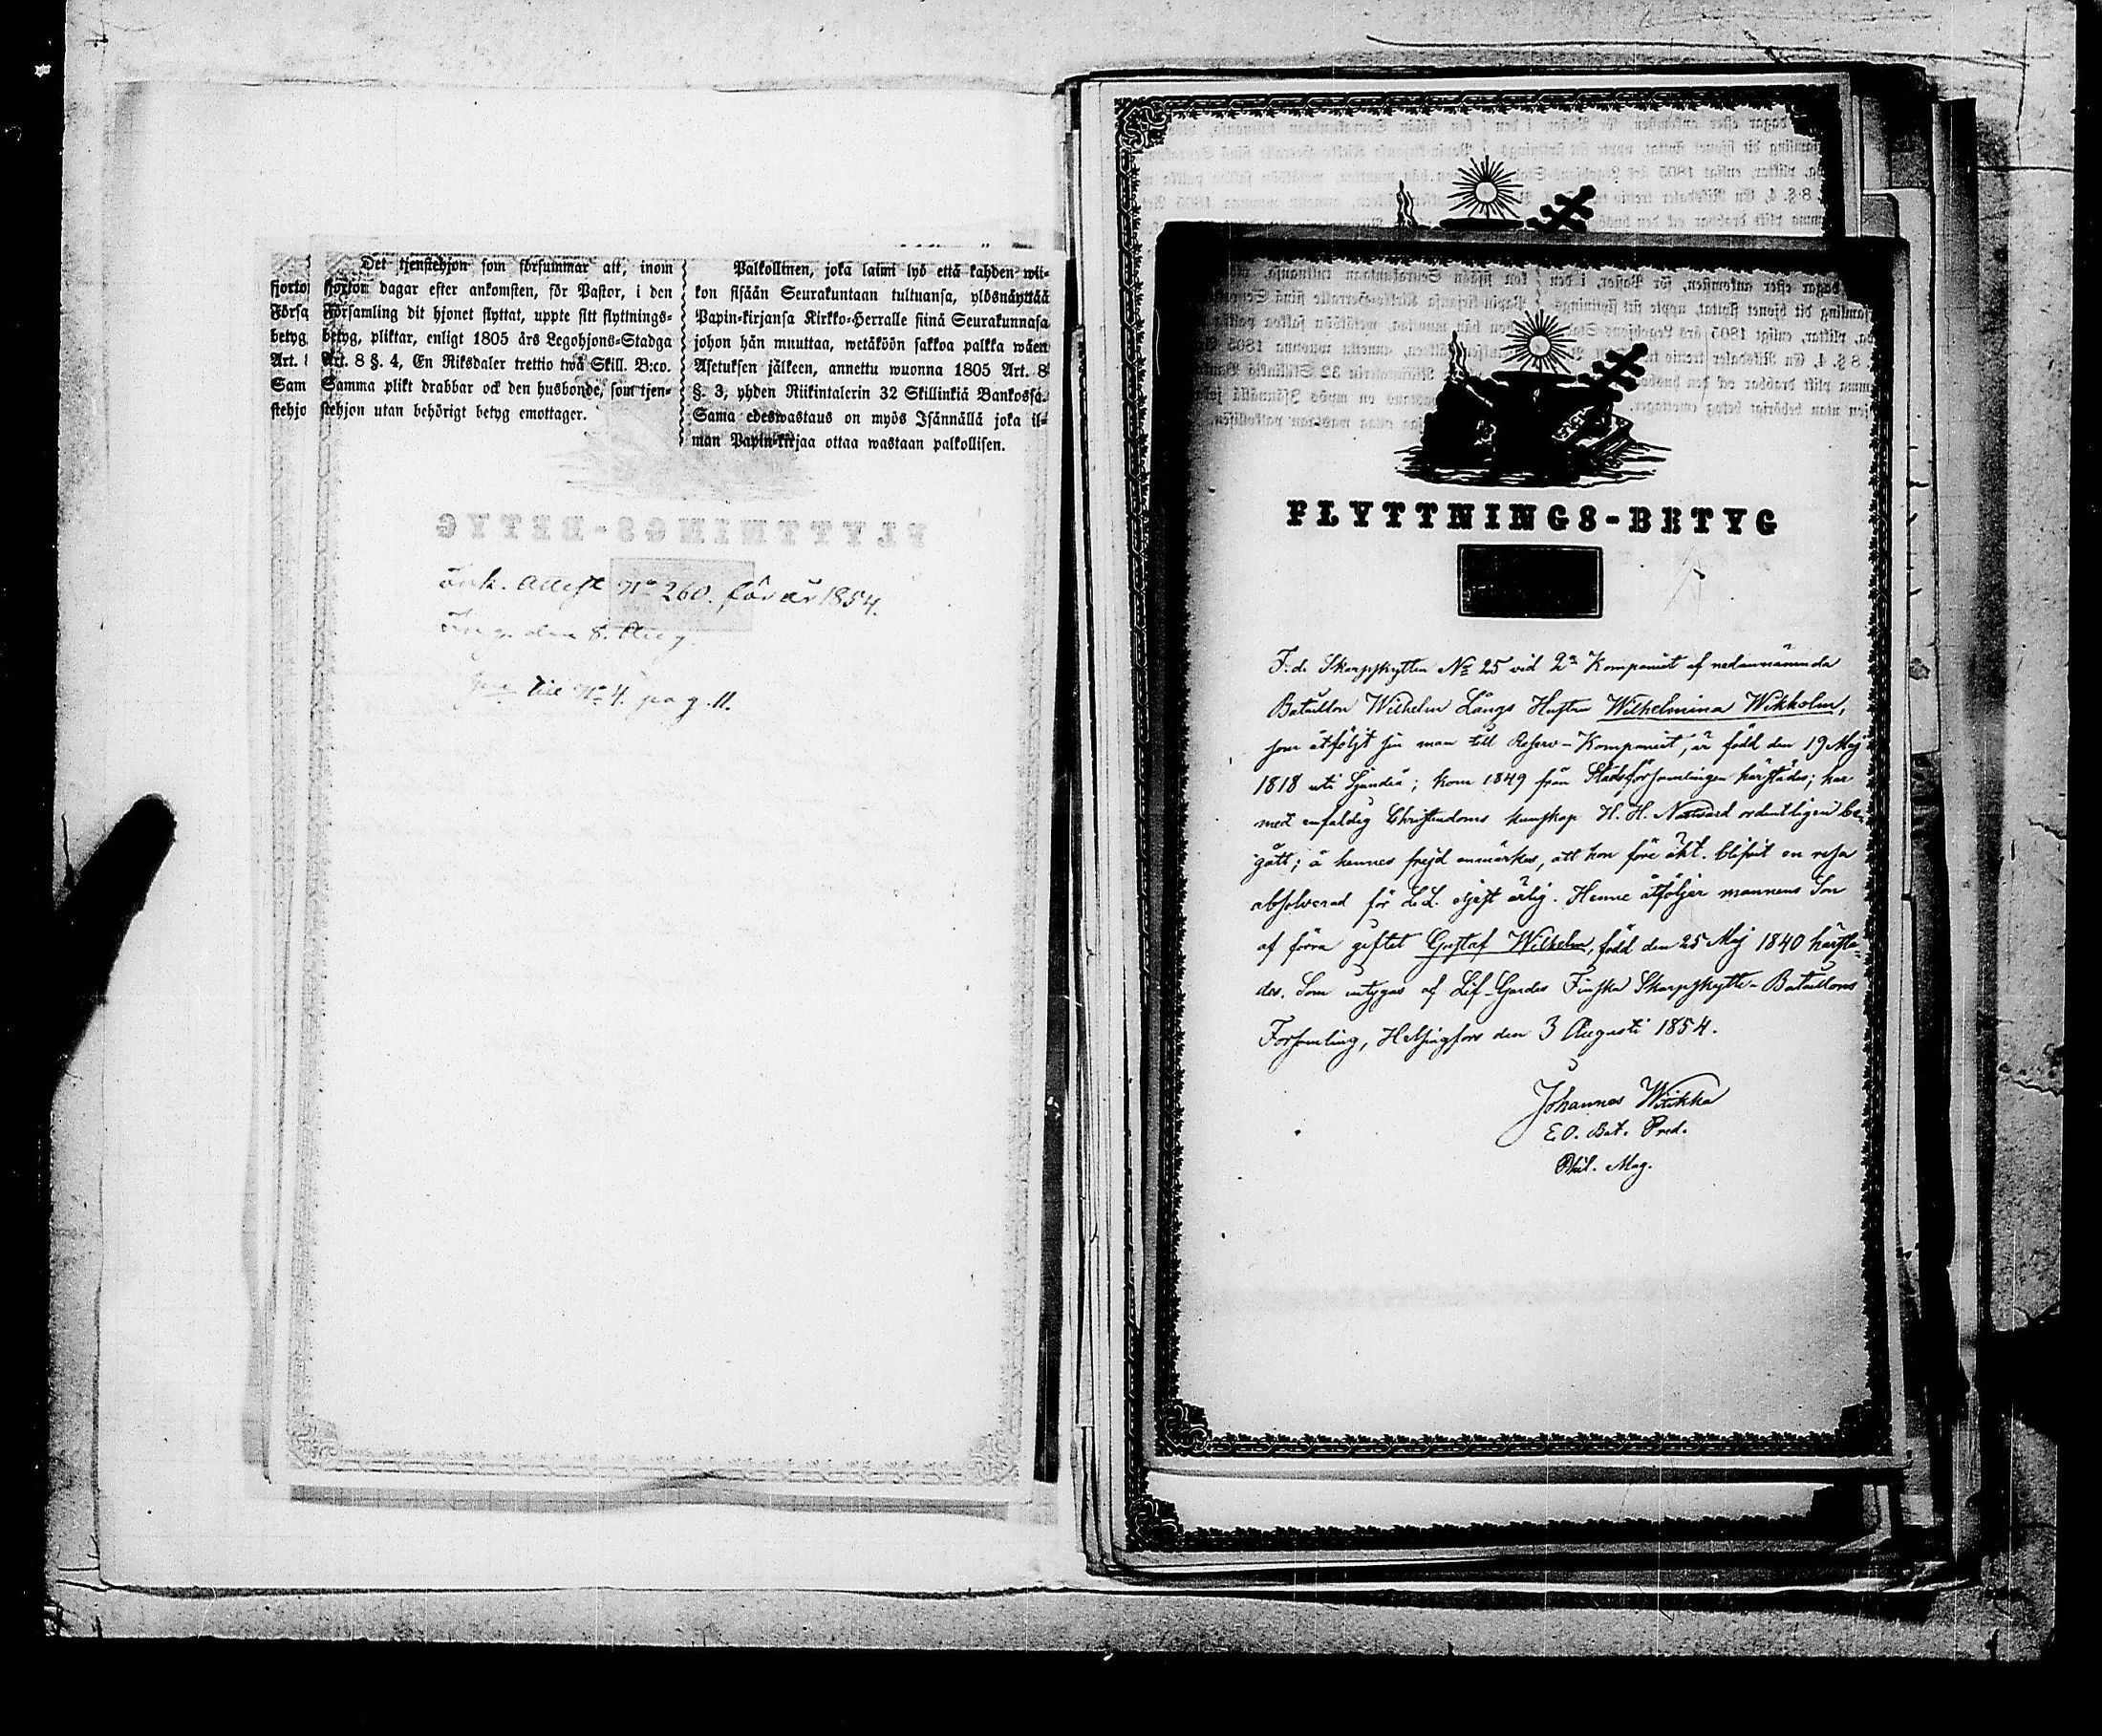 Det tjenstehjon som försummar att, inom
fjorton dagar efter ankomsten, för Pastor, i den
Församling dit hjonet flyttat, uppte sitt flyttnings-
betyg, pliktar, enligt 1805 års Legohjons-Stadga
Art. 8 §. 4, En Riksdaler trettio twå Skill. B:co.
Samma plikt drabbar ock den husbonde, som tjen-
stehjon utan behörigt betyg emottager.
Palkollinen, joka laimi lyö että kahden wii-
kon sisään Seurakuntaan tultuansa, ylösnäyttää
Papin-kirjansa Kirkko-Herralle siinä Seurakunnasa
johon hän muuttaa, wetäköön sakkoa palkka wäen
Asetuksen jälkeen, annettu wuonna 1805 Art. 8
§. 3, yhden Riikintalerin 32 Skillinkiä Bankossa.
Sama edeswastaus on myös Isännällä joka il-
man Papin-kirjaa ottaa wastaan palkollisen.
fjorto
Förså
betyg
Art. 8
Sam
stehjo
Ink. Attest No 260. för år 1854.
Ing. den 8. Aug.
till No 4. pag. 11.
FLYTTNINGS-BETYG
F. d. Skarpskytten No 25 vid 2a Kompaniet af nedannämnda
Bataillon Wilhelm Långs Hustru Wilhelmina Wikholm,
som åtföljt sin man till Reserv-Kompaniet, är född den 19 Maj
1818 uti Sjundeå; kom 1849 från Stadsförsamlingen härstädes; har
med enfaldig Christendoms kunskap H. H. Nattvard ordentligen be-
gått; å hennes frejd anmärkes, att hon före äkt. blifvit en resa
absolverad för L. L. eljest ärlig. Henne åtföljer mannens Son
af förra giftet Gustaf Wilhelm, född den 25 Maj 1840 härstä-
des. Som intygas af Lif-Gardes Finska Skarpskytte-Bataillons
Församling, Helsingfors den 3 Augusti 1854.
Johannes Wikka
E.O. Bat. Pred.
Phil. Mag.